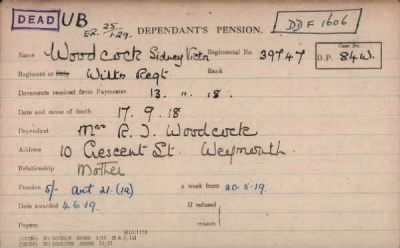 DEAD UB
25/1.29. DEPENDANT'S PENSION. DDF 1606
Name Woodcock Sidney Victor Regimental No. 39747 Case No.
Regiment or Ship Wilts Regt Rank D.P. 84W.
Documents received from Paymaster 13. 11. 18.
Date and cause of death 17. 9. 18
Dependent Mrs R. J. Woodcock
Address 10 Crescent St. Weymouth
Relationship Mother
Pension 5/- art 21. (1a) a week from 20.5.19.
Date awarded 4.6.19. If refused
Papers reason